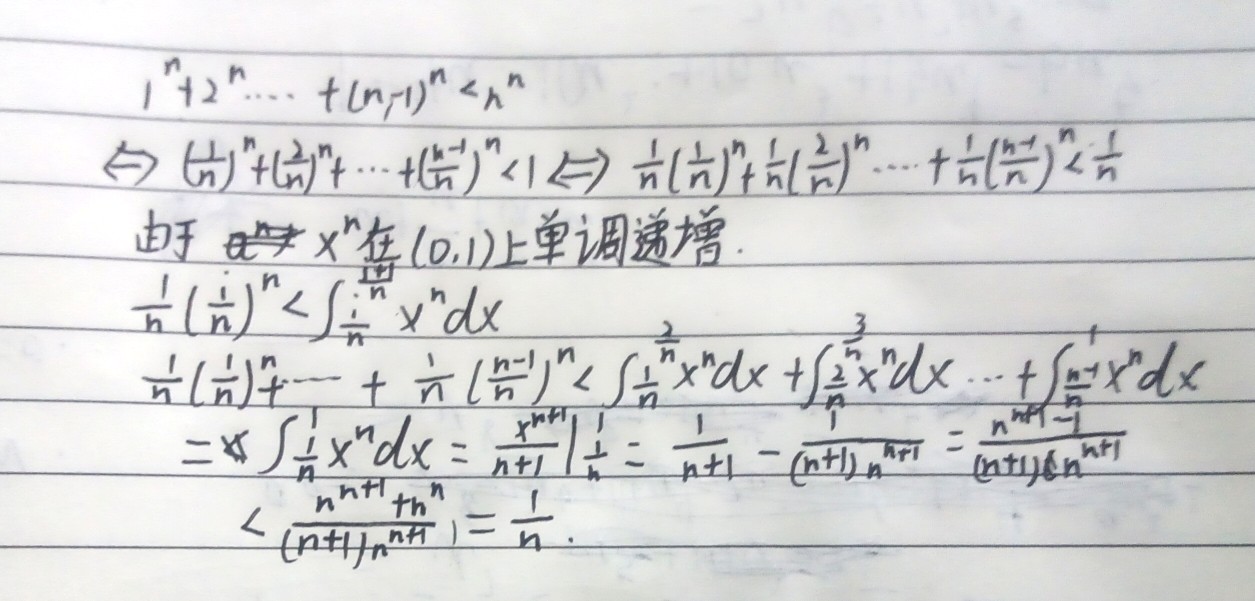 1ⁿ+2ⁿ.... +(n-1)ⁿ<nⁿ
⇔ (1/n)ⁿ+(2/n)ⁿ+ ... +((n-1)/n)ⁿ<1 ⇔ 1/n(1/n)ⁿ+1/n(2/n)ⁿ .... +1/n((n-1)/n)ⁿ<1/n
由于 xⁿ在(0,1)上单调递增.
1/n(i/n)ⁿ<∫_{i/n}^{(i+1)/n} xⁿdx
1/n(1/n)ⁿ+ .... + 1/n((n-1)/n)ⁿ<∫_{1/n}^{2/n} xⁿdx+∫_{2/n}^{3/n} xⁿdx ... +∫_{(n-1)/n}^{1} xⁿdx
= ∫_{1/n}^{1} xⁿdx = x^{n+1}/(n+1) |_{1/n}^{1} = 1/(n+1) - 1/((n+1)n^{n+1}) = (n^{n+1}-1)/((n+1)n^{n+1})
< (n^{n+1}+nⁿ)/((n+1)n^{n+1}) = 1/n.